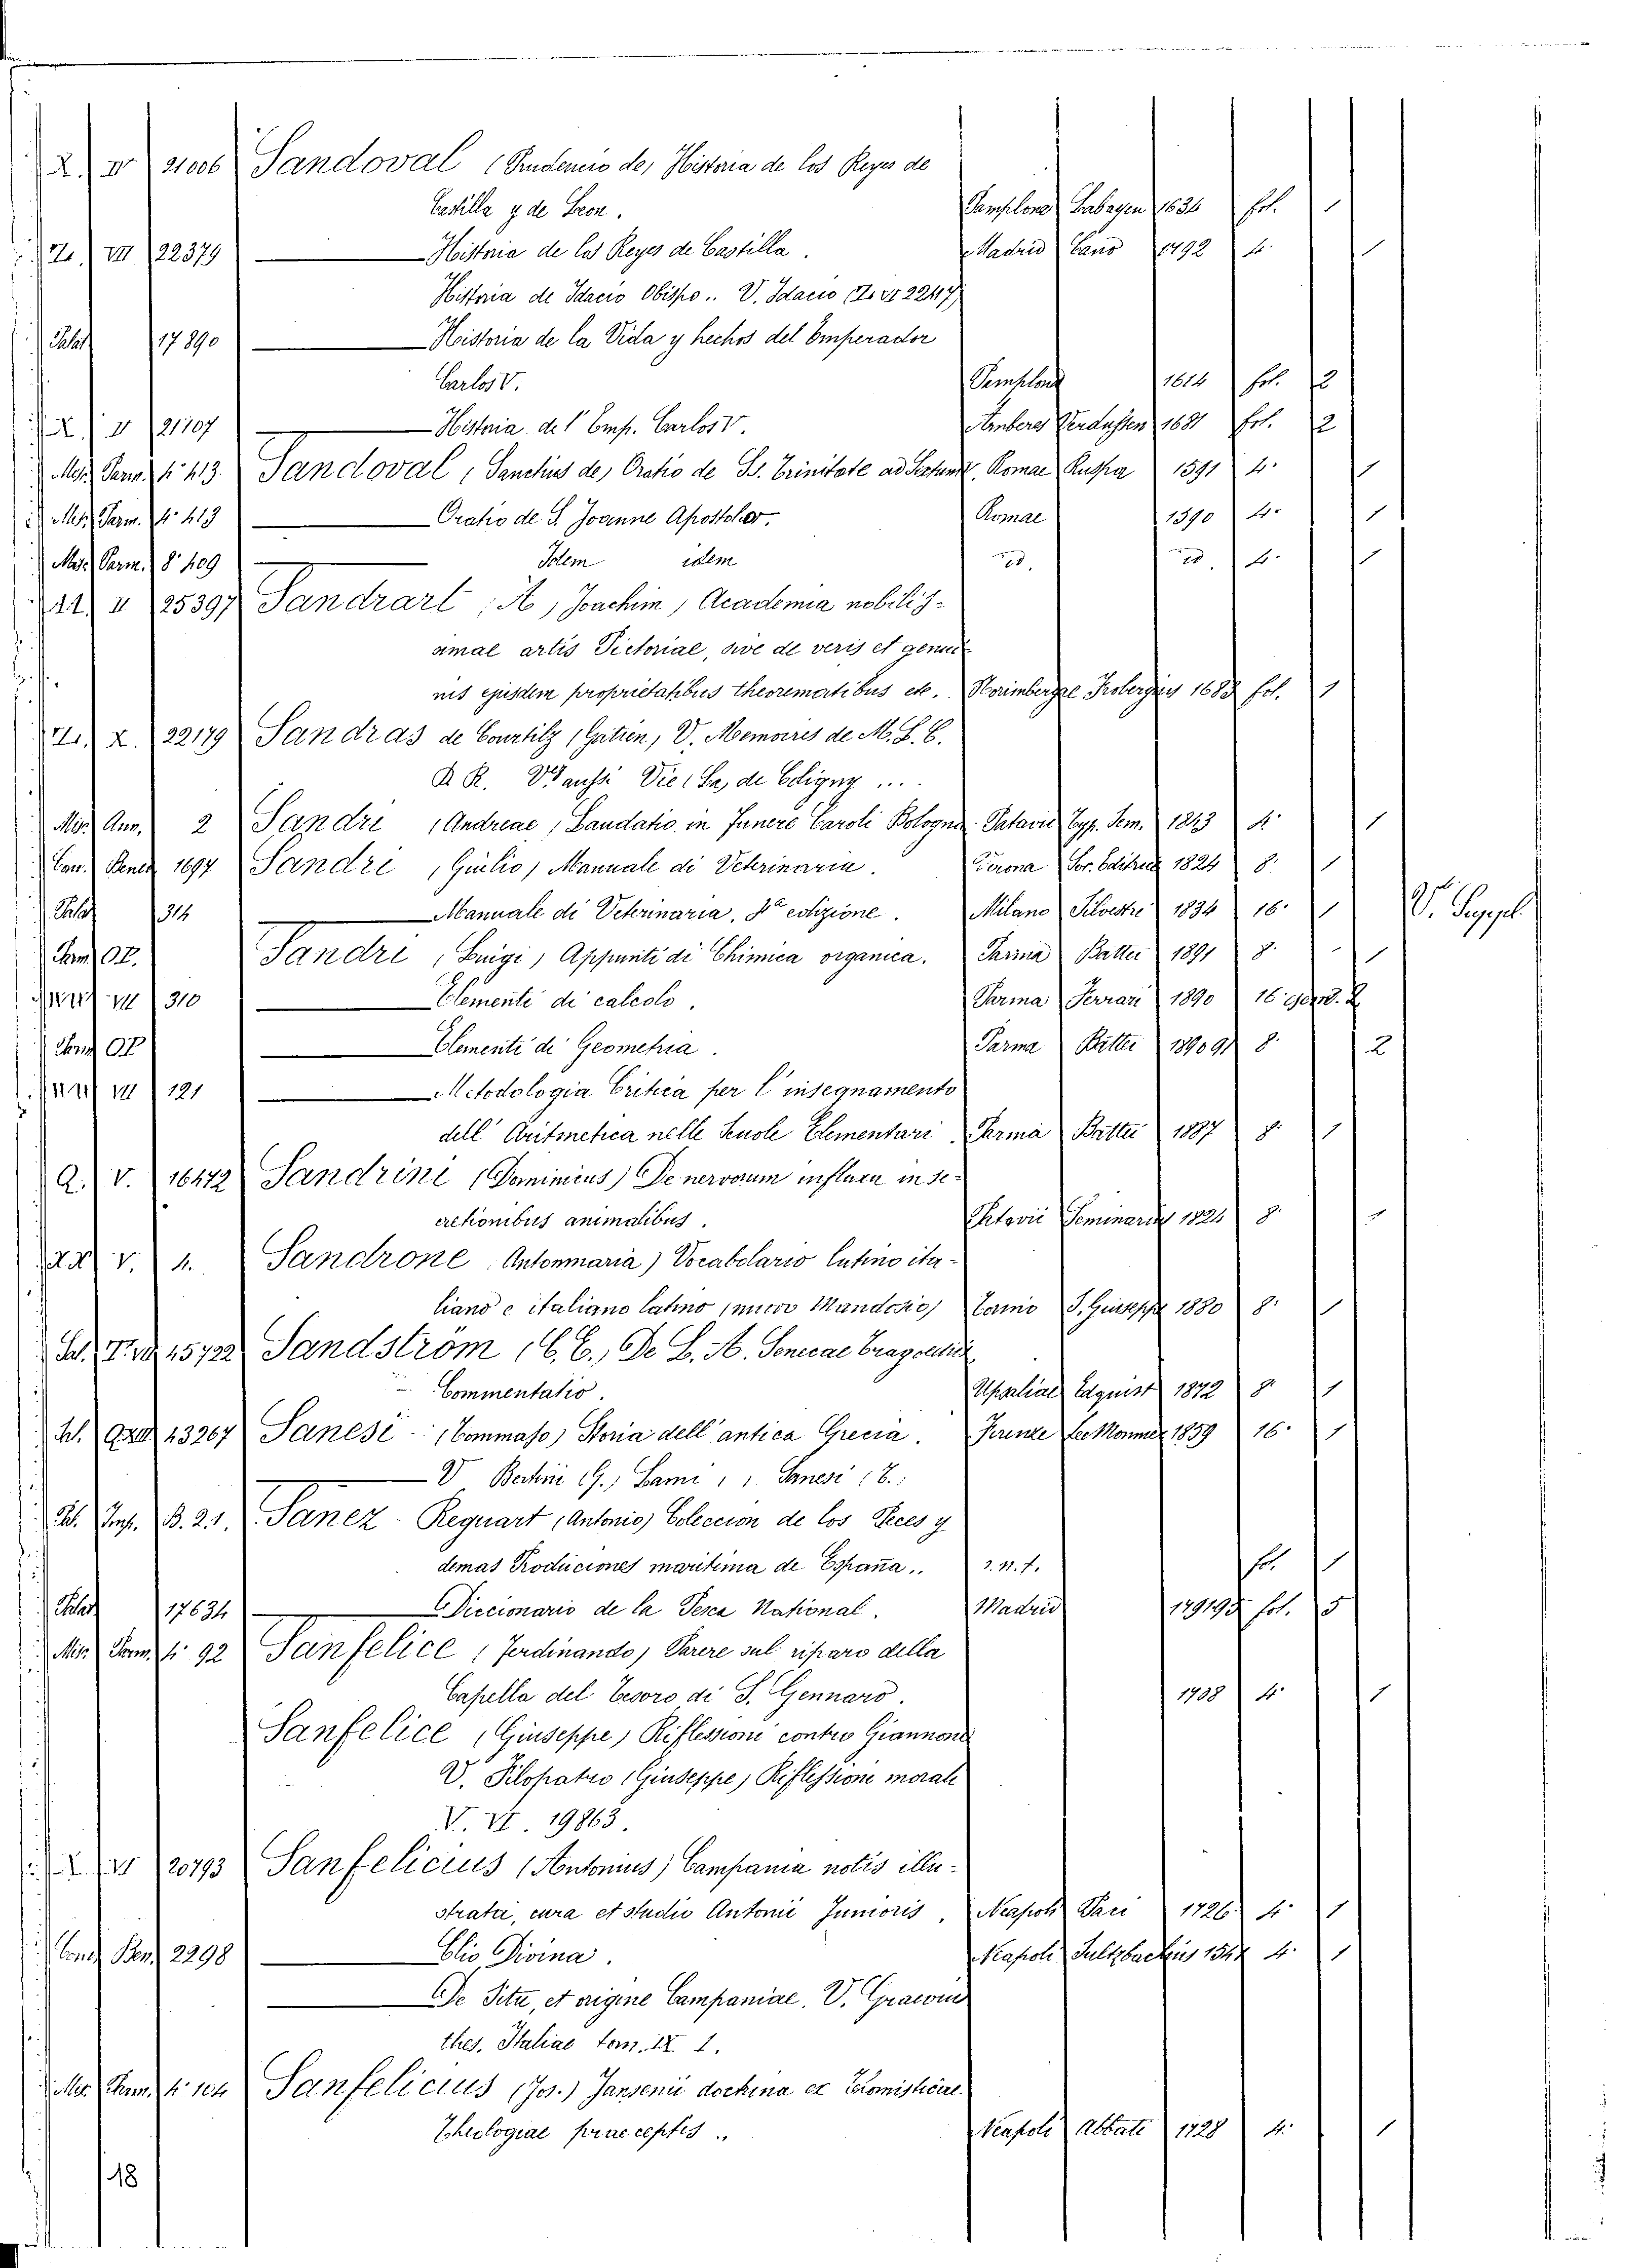 X. IV 21006 Sandoval (Prudencio de) Historia de los Reyes de
Castilla y de Leon. Pamplona Labayen 1634 fol. 1
Z. VII. 22379 — Historia de los Reyes de Castilla. Madrid Cano 1792 4. 1
Historia de Idacio Obispo.. V. Idacio (Z. VI 22417)
Palat 17890 — Historia de la Vida y hechos del Emperador
Carlos V. Pamplona 1614 fol. 2
X. II 21107 — Historia del Emp. Carlos V. Amberes Verdussen 1681 fol. 2
Misc. Parm. 4° 413. Sandoval (Sanctius de) Oratio de SS. Trinitate Romae 1591 4. 1
Misc. Parm. 4° 413 — Oratio de S. Joanne Apostolo. Romae 1590 4. 1
Misc. Parm. 8° 409 — Idem idem id. id. 4. 1
II 25397 Sandrart (A, Joachim) Academia nobilis-
simae artis Pictoriae, sive de veris et genui-
nis ejusdem proprietatibus theorematibus etc. Norimbergae 1683 fol. 1
X. 22179 Sandras de Courtilz (Gatien) V. Memoires de M. L. C.
D. R. V. aussi Vie (La) de Coligny ....
Misc. Ann. 2 Sandri (Andreae) Laudatio in funere Caroli Bologna Patavii Typ. Sem. 1813 4. 1
Con. Bened 1697 Sandri (Giulio) Manuale di Veterinaria. Verona Soc. Editrice 1824 8. 1
Palat 314 — Manuale di Veterinaria, 2a edizione. Milano Silvestri 1834 16. 1 V. Suppl.
Parm. OP. Sandri (Luigi) Appunti di Chimica organica. Parma Battei 1891 8. 1
VII 310 — Elementi di calcolo. Parma Ferrari 1890 16
Parm. OP — Elementi di Geometria. Parma Battei 1890 91 8. 2
VII 121 — Metodologia Critica per l'insegnamento
dell'Aritmetica nelle Scuole Elementari. Parma Battei 1887 8. 1
Q. V. 16472 Sandrini (Dominicus) De nervorum influxu in se-
cretionibus animalibus. Patavii Seminarii 1824 8. 1
V. 4. Sandrone (Antonmaria) Vocabolario latino ita-
liano e italiano latino (nuovo Mandosio) Torino S. Giuseppe 1880 8. 1
15722 Sandström (C. E.) De L. A. Senecae Tragoediis
Commentatio. Upsaliae Edquist 1872 8. 1
Sal. 13267 Sanesi (Tommaso) Storia dell'antica Grecia. Firenze Le Monnier 1859 16. 1
— V. Bertini (G.) Lami, Sanesi (T.)
B. 21. Sanez-Reguart (Antonio) Coleccion de los Peces y
demas Producciones maritima de España.. s. n. t. fol. 1
Palat 17634 — Diccionario de la Pesca National. Madrid 1791 95 fol. 5
Misc. Parm. 4° 92 Sanfelice (Ferdinando) Parere sul riparo della
Capella del Tesoro di S. Gennaro. 1708 4. 1
Sanfelice (Giuseppe) Riflessioni contro Giannone
V. Filopatro (Giuseppe) Riflessioni morali
V. VI. 19863.
X. VI 20793 Sanfelicius (Antonius) Campania notis illu-
strata, cura et studio Antonii Junioris. Neapoli Paci 1726 4. 1
Con. Ben. 2298 — Clio Divina. Neapoli Sultzbachius 1541 4. 1
— De Situ, et origine Campaniae. V. Graevius
thes. Italiae tom. IX 1.
Misc. Parm. 4. 104 Sanfelicius (Jos.) Jansenii doctrina ex Thomisticae
Theologiae praeceptis.. Neapoli Abbate 1728 4. 1
18